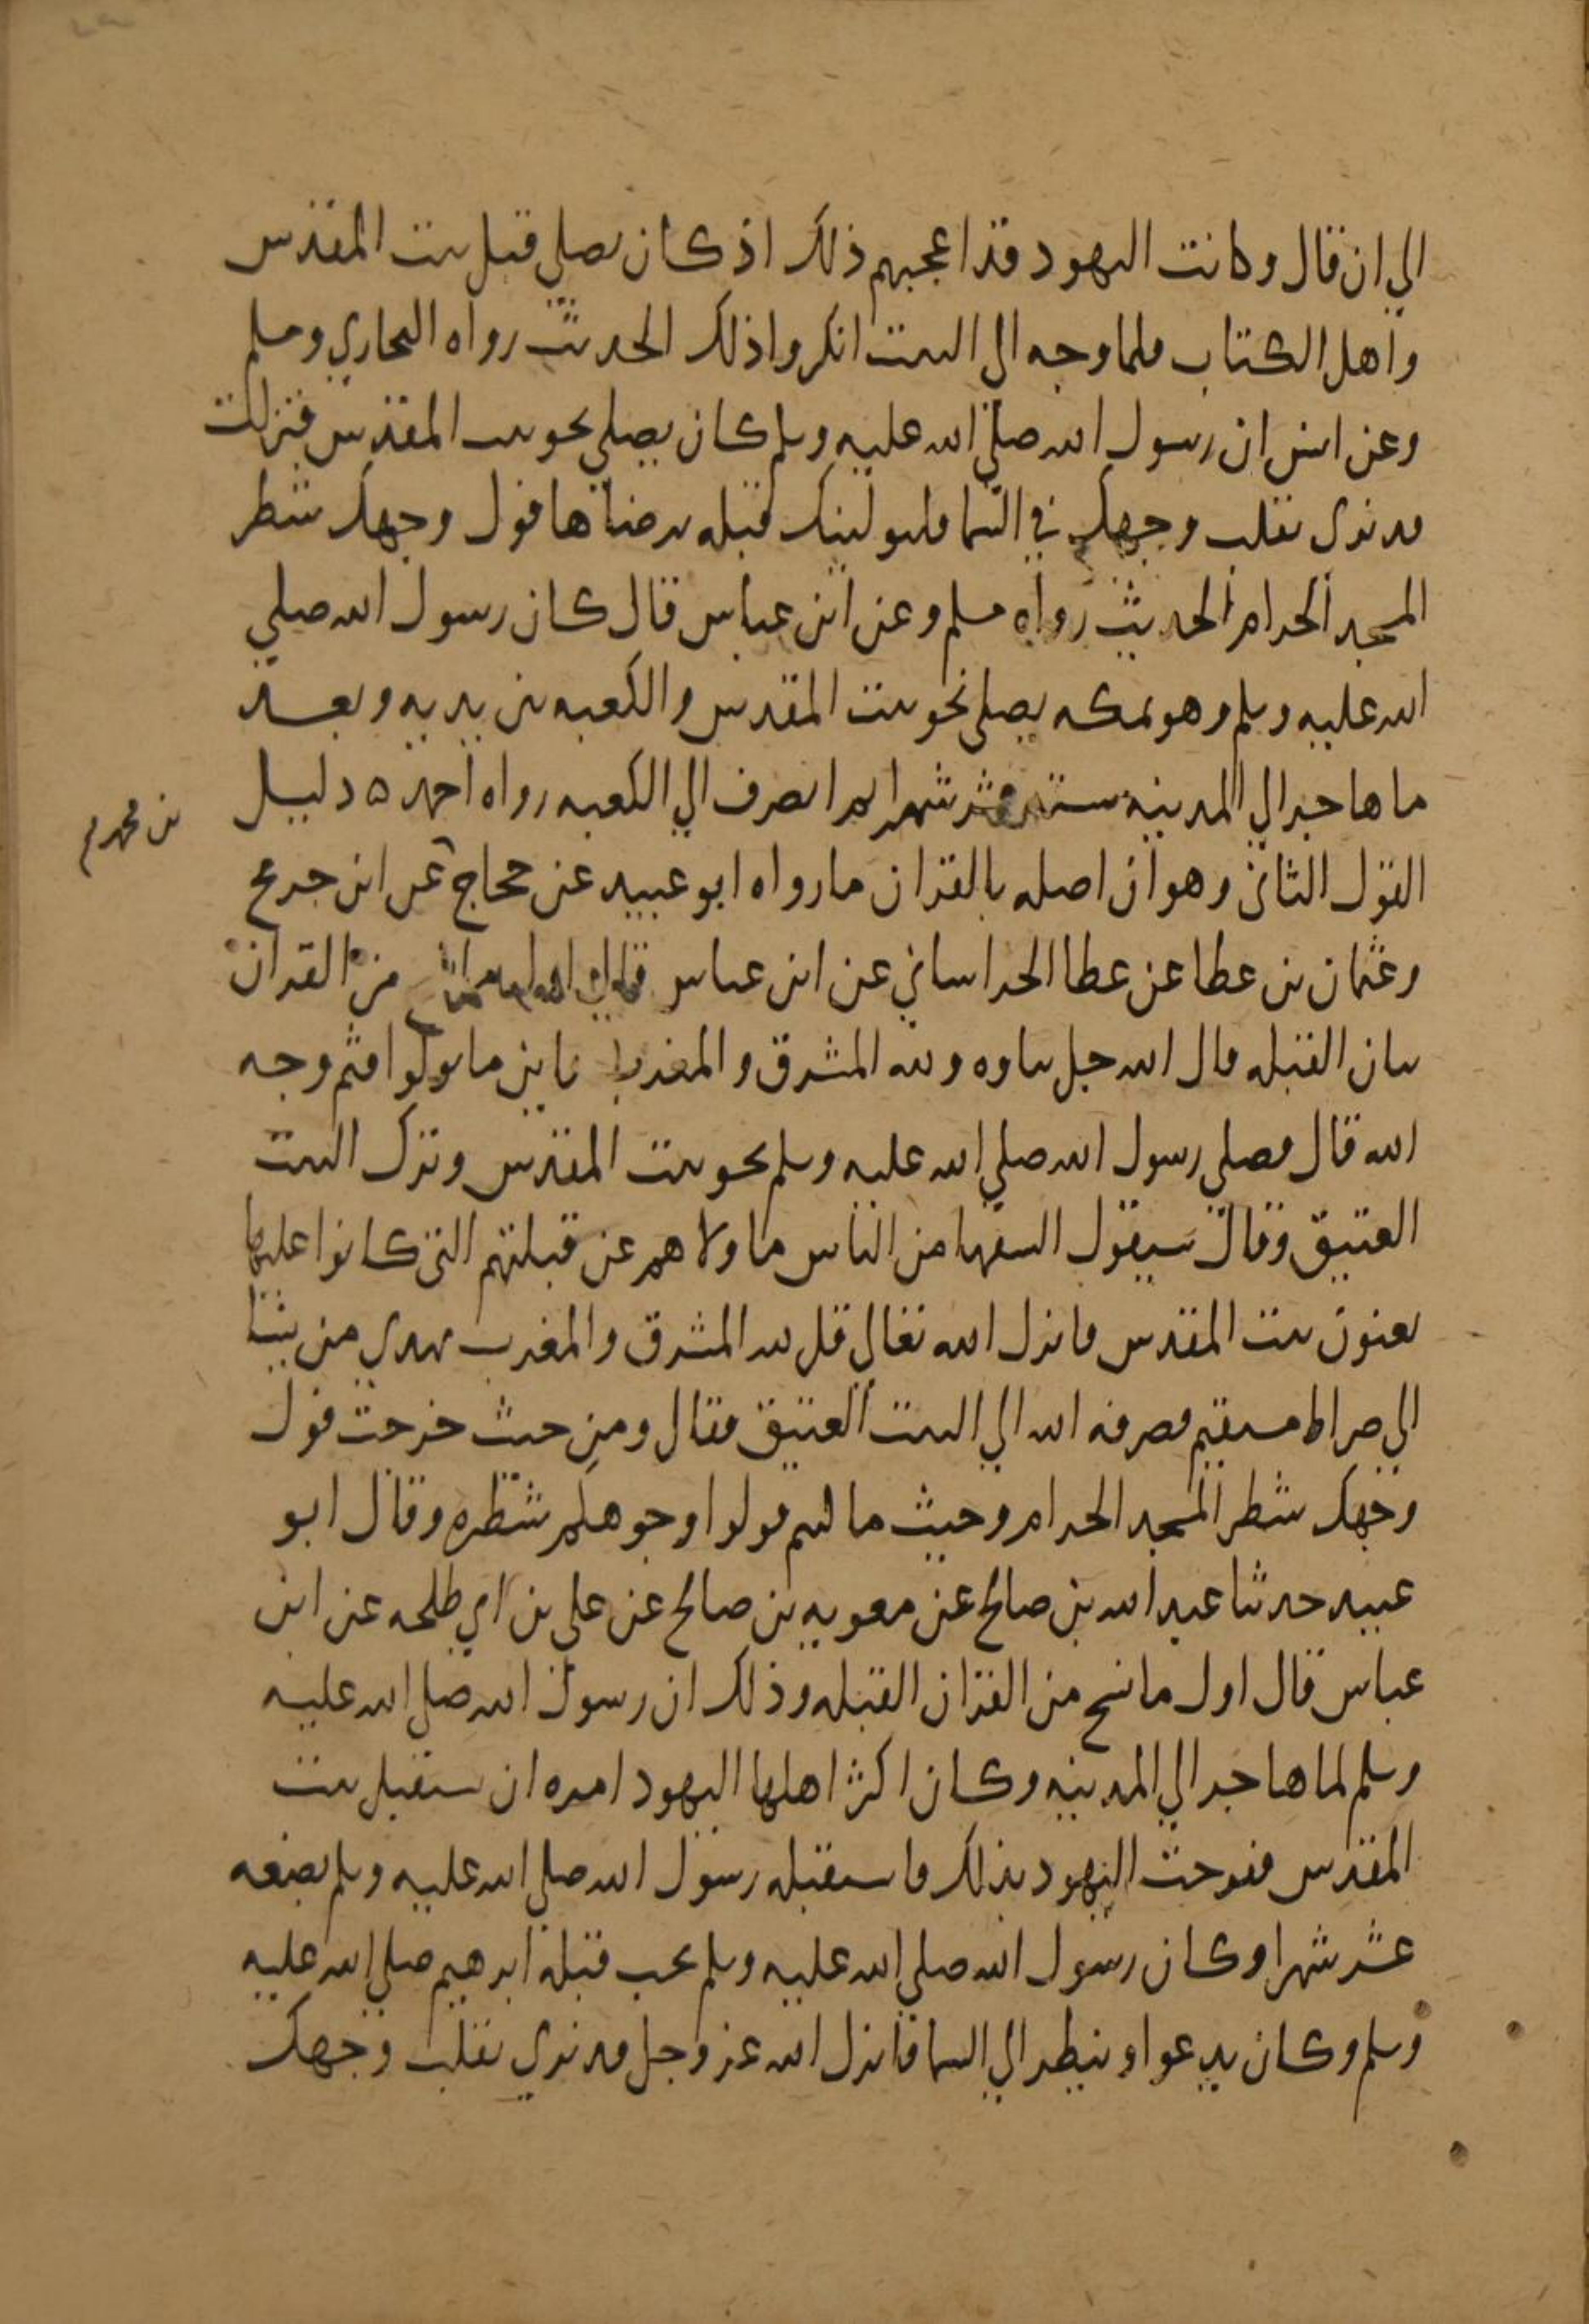 الي ان قال وكانت اليهود قد اعجبهم ذلك اذ كان يصلي قبل بيت المقدس
واهل الكتاب فلما وجه الي البيت انكروا ذلك الحديث رواه البخاري ومسلم
وعن انس ان رسول الله صلي الله عليه وسلم كان يصلي نحو بيت المقدس فنزلت
قد نري تقلب وجهك في السما فلنولينك قبله ترضاها فول وجهك شطر
المسجد الحرام الحديث رواه مسلم وعن ابن عباس قال كان رسول الله صلي
الله عليه وسلم وهو بمكه يصلي نحو بيت المقدس والكعبه بين يديه وبعد
ما هاجر الي المدينه ستة عشر شهرا ثم انصرف الي الكعبه رواه احمد ه دليل
القول الثاني وهو ان اصله بالقران ما رواه ابو عبيد عن حجاج عن ابن جريج
بن محمد
وعثمان بن عطا عن عطا الخراساني عن ابن عباس قال اول ما نسخ من القران
شان القبله قال الله جل ثناوه ولله المشرق والمغرب فاينما تولوا فثم وجه
الله قال فصلي رسول الله صلي الله عليه وسلم نحو بيت المقدس وترك البيت
العتيق وقال سيقول السفها من الناس ما ولاهم عن قبلتهم التي كانوا عليها
يعنون بيت المقدس فانزل الله تعالي قل لله المشرق والمغرب يهدي من يشا
الي صراط مستقيم فصرفه الله الي البيت العتيق فقال ومن حيث خرجت فول
وجهك شطر المسجد الحرام وحيث ما كنتم فولوا وجوهكم شطره وقال ابو
عبيد حدثنا عبد الله بن صالح عن معويه بن صالح عن علي بن ابي طلحه عن ابن
عباس قال اول ما نسخ من القران القبله وذلك ان رسول الله صلي الله عليه
وسلم لما هاجر الي المدينه وكان اكثر اهلها اليهود امره ان يستقبل بيت
المقدس ففرحت اليهود بذلك فاستقبله رسول الله صلي الله عليه وسلم بضعه
عشر شهرا وكان رسول الله صلي الله عليه وسلم يحب قبلة ابرهيم صلي الله عليه
وسلم وكان يدعوا وينظر الي السما فانزل الله عز وجل قد نري تقلب وجهك